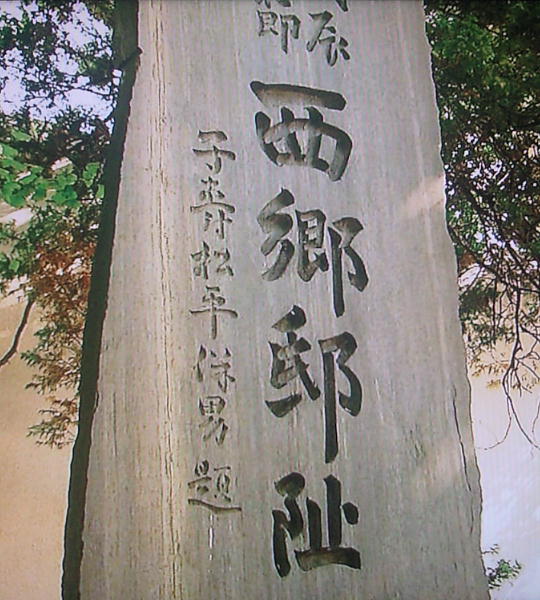 辰
節
西郷邸址
子爵松平保男題